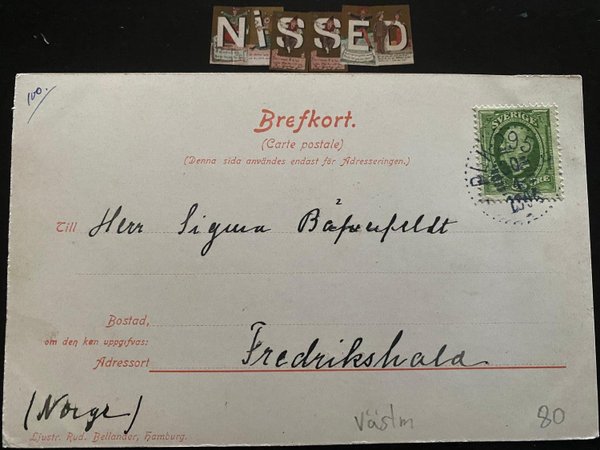 NiSSED
100.
Brefkort.
(Carte postale)
(Denna sida användes endast för Adresseringen.)
SVERIGE
Till Herr Sigma
Bostad,
om den kan uppgifvas:
Adressort Fredrikshald
(Norge)
Ljustr. Rud. Bellander, Hamburg.
Västm
80